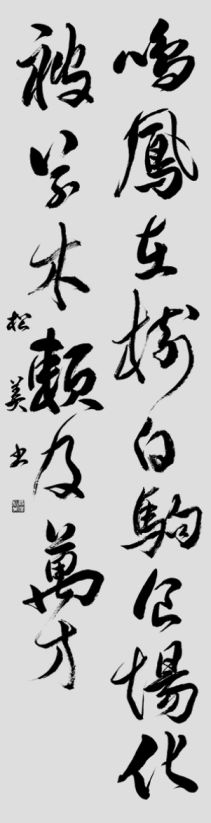 鳴鳳在樹白駒食場化
被草木賴及萬方
松美書